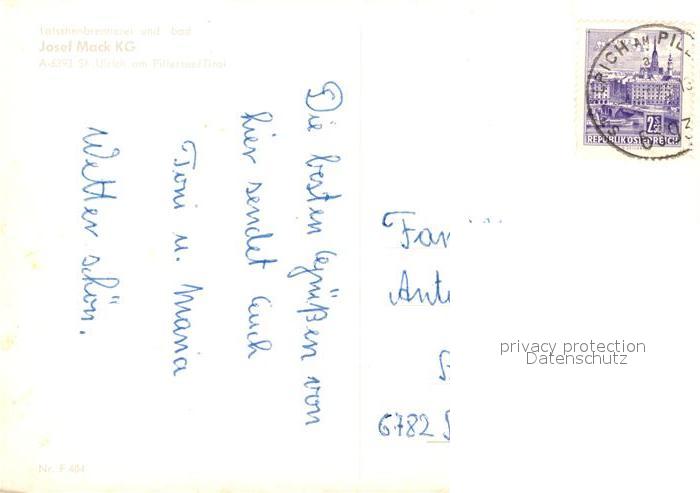 Latschenbrennerei und bad
Josef Mack KG
A-6393 St. Ulrich am Pillersee/Tirol
Die besten Grüßen von
hier sendet Euch
Toni u. Maria
Wetter schön.
REPUBLIK OSTERREICH
Fam
Anto
6782
privacy protection
Datenschutz
Nr. F 404